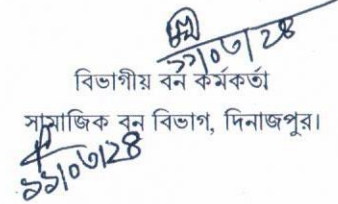 ১১/০৩/২৪
বিভাগীয় বন কর্মকর্তা
সামাজিক বন বিভাগ, দিনাজপুর।
১১/০৩/২৪